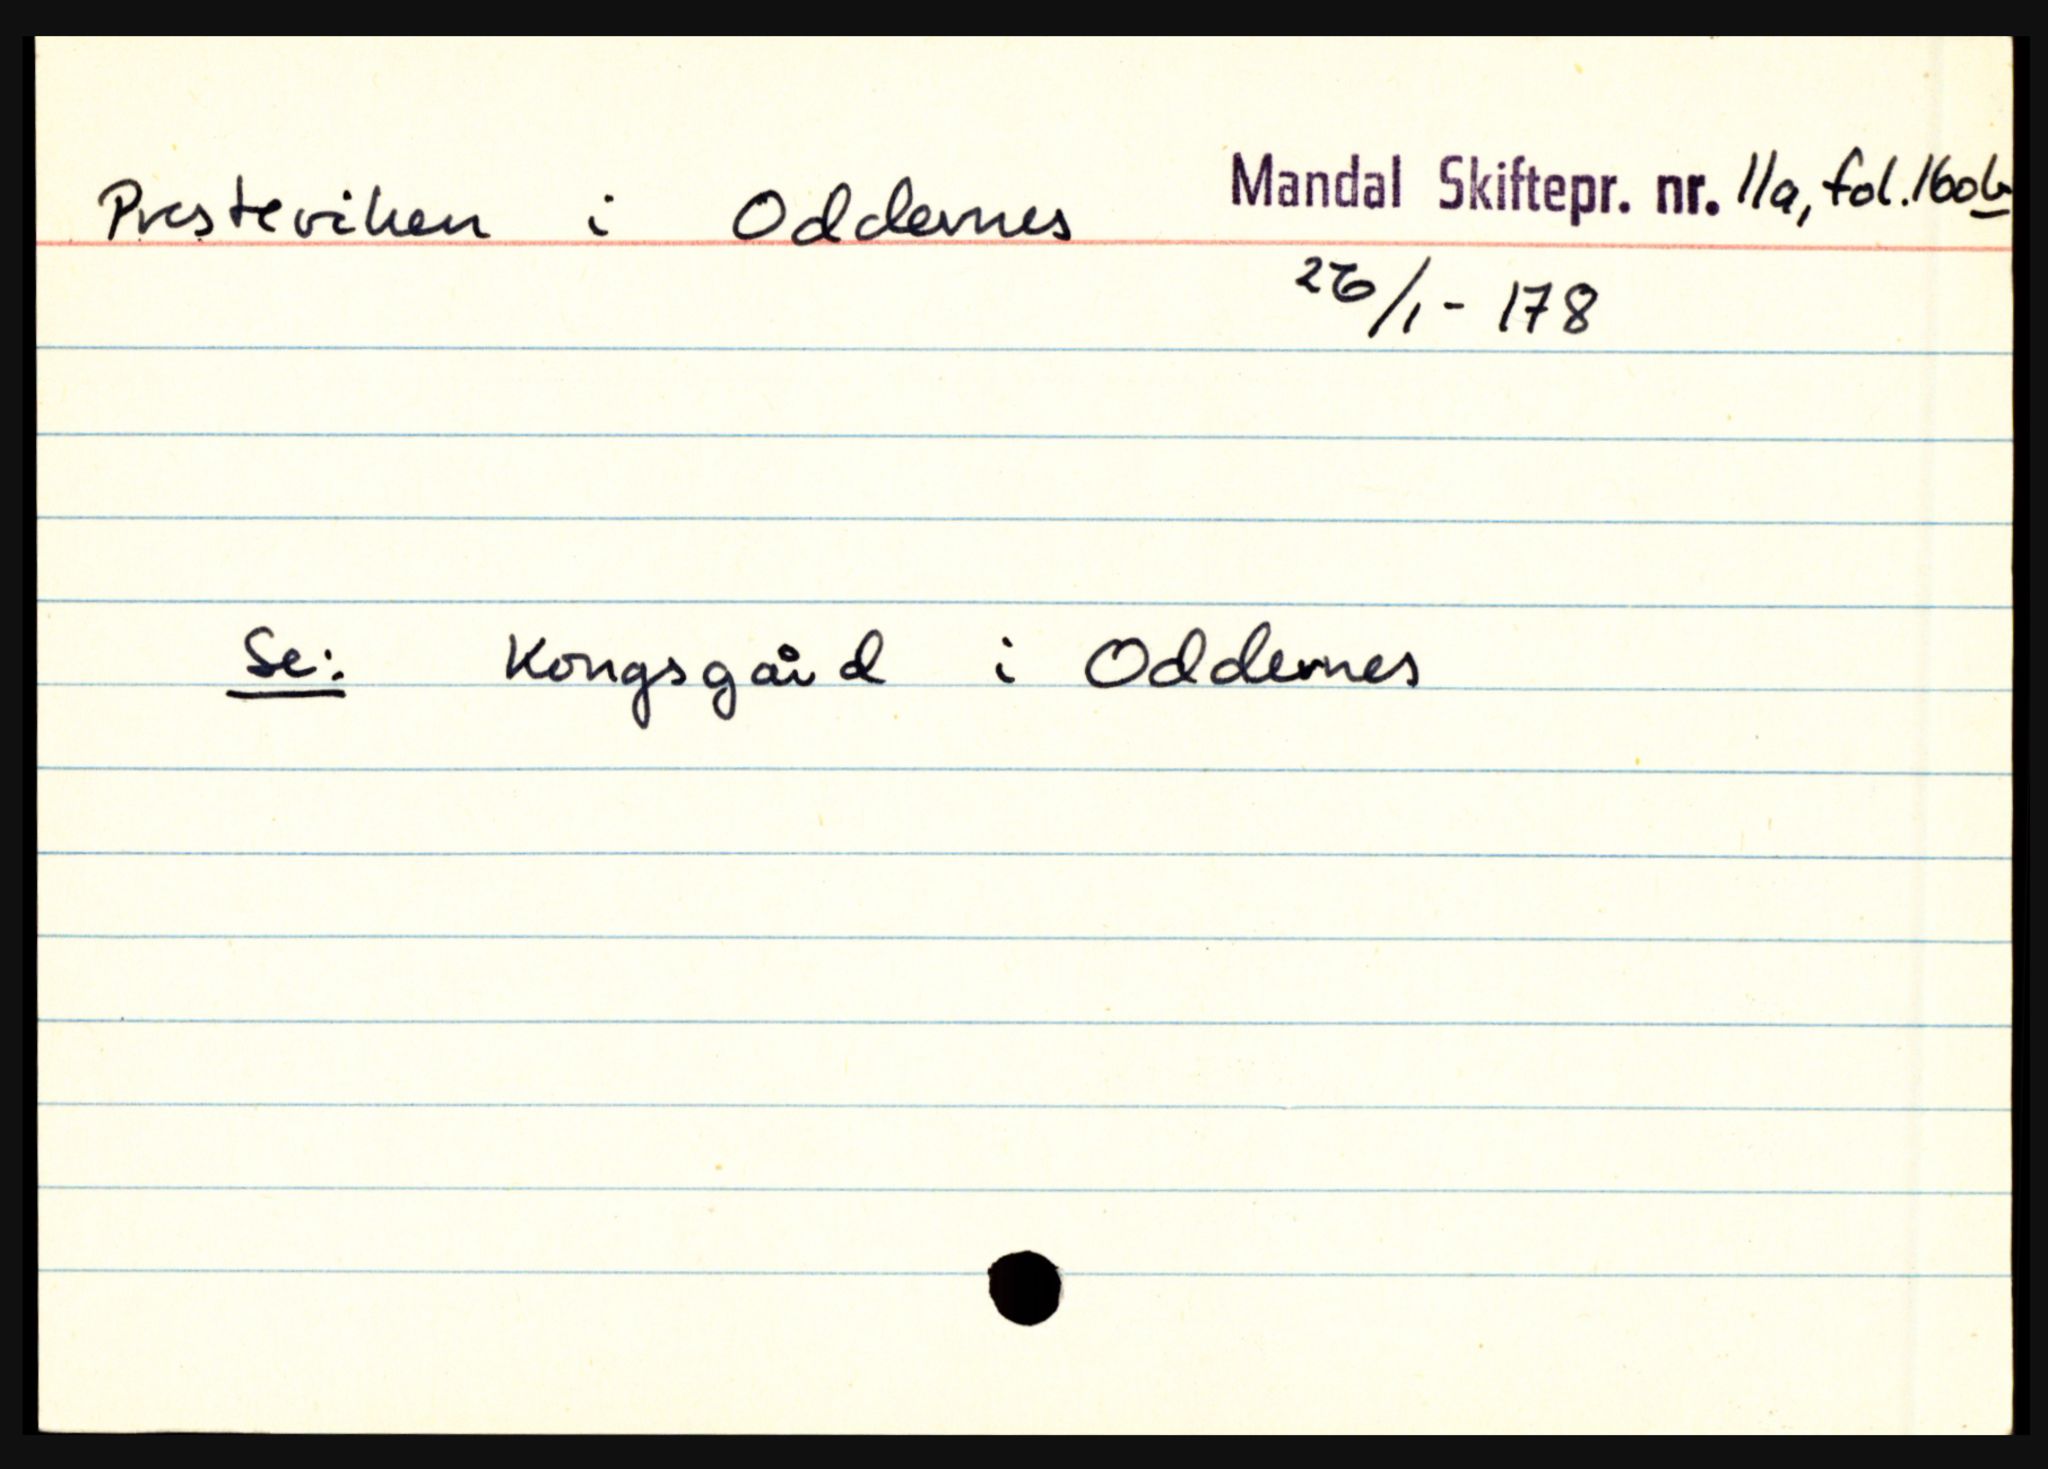 Presteviken i Oddernes Mandal Skiftepr. nr. 11a, fol. 160b
26/1 - 178
Se: Kongsgård i Oddernes